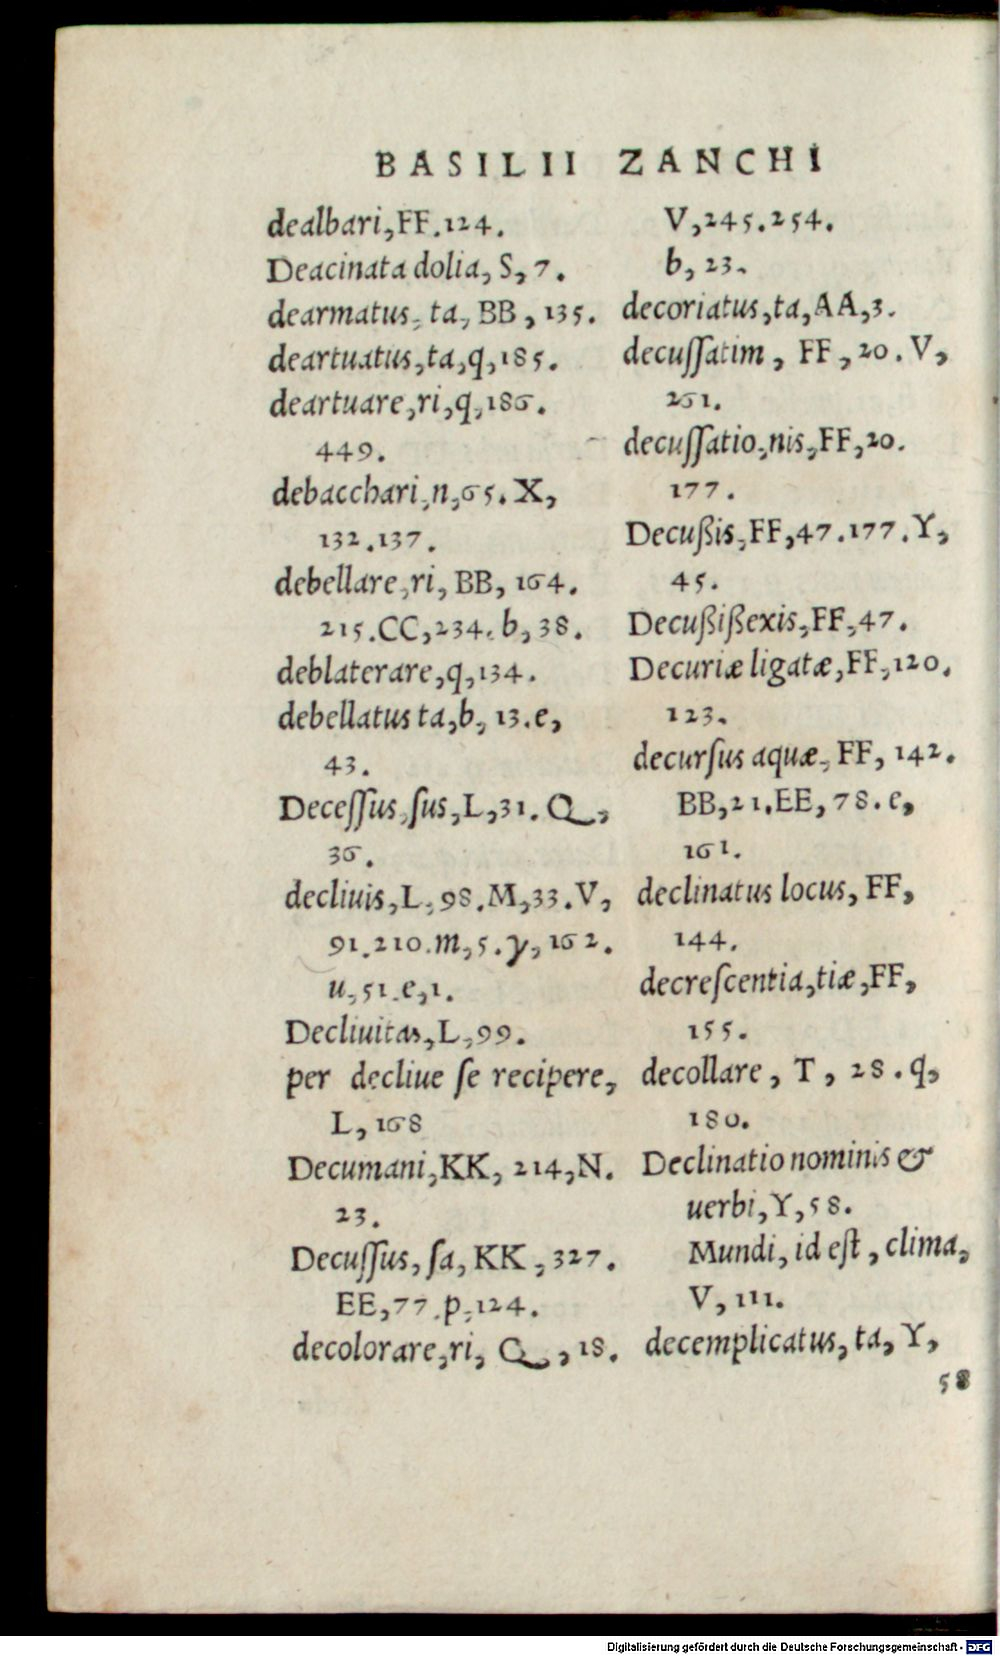 BASILII ZANCHI
dealbari, FF. 124.
Deacinata dolia, S, 7.
dearmatus, ta, BB, 135.
deartuatus, ta, q, 185.
deartuare, ri, q, 186.
449.
debacchari, n, 65. X,
132. 137.
debellare, ri, BB, 164.
215. CC, 234. b, 38.
deblaterare, q, 134.
debellatus ta, b, 13. e,
43.
Deceſſus, ſus, L, 31. Q,
36.
decliuis, L, 98. M, 33. V,
91. 210. m, 5. y, 162.
u, 51. e, 1.
Decliuitas, L, 99.
per decliue ſe recipere,
L, 168
Decumani, KK, 214, N.
23.
Decuſſus, ſa, KK, 327.
EE, 77. p, 124.
decolorare, ri, Q, 18.
V, 245. 254.
b, 23.
decoriatus, ta, AA, 3.
decuſſatim, FF, 20. V,
261.
decuſſatio, nis, FF, 20.
177.
Decußis, FF, 47. 177. Y,
45.
Decußißexis, FF, 47.
Decuriæ ligatæ, FF, 120.
123.
decurſus aquæ, FF, 142.
BB, 21. EE, 78. e,
161.
declinatus locus, FF,
144.
decreſcentia, tiæ, FF,
155.
decollare, T, 28. q,
180.
Declinatio nominis &
uerbi, Y, 58.
Mundi, id eſt, clima,
V, 111.
decemplicatus, ta, Y,
58
Digitalisierung gefördert durch die Deutsche Forschungsgemeinschaft - DFG